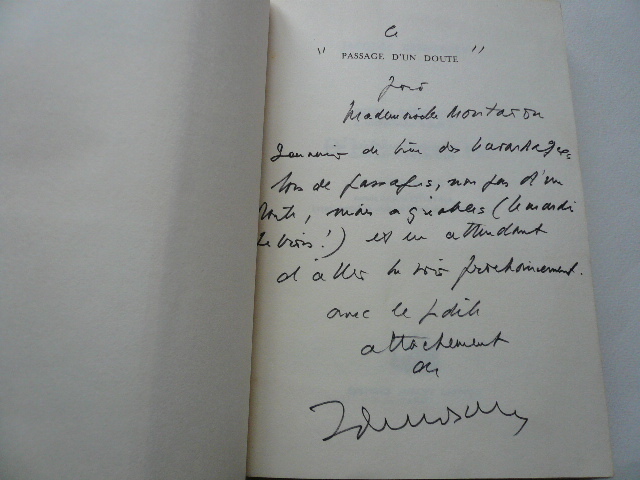 Ce
" PASSAGE D'UN DOUTE "
pour
Mademoiselle Montaron
Souvenir de bien des bavardages
lors de passages, non pas d'un
doute, mais agréables (le mardi
) et en attendant
d'aller la voir prochainement.
avec le fidèle
attachement
de